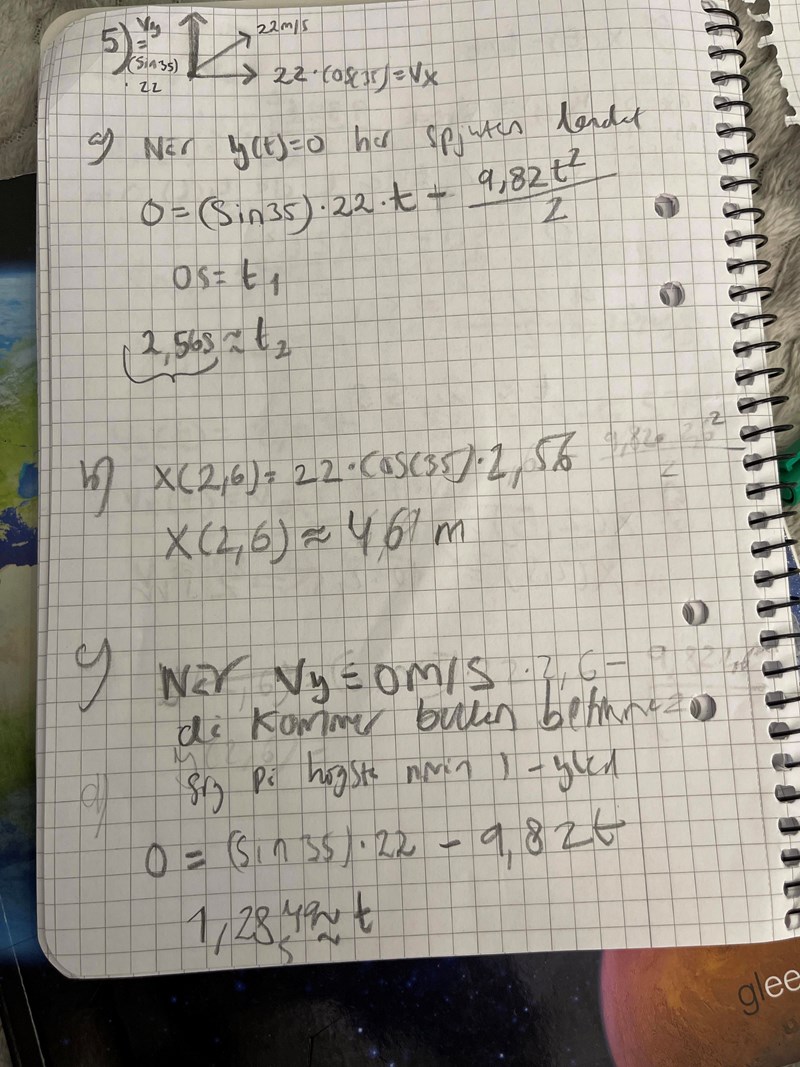 5) Vy
=
(sin35)
· 22
22m/s
22·cos(35)=Vx
a) När y(t)=0 har spjuten landat
0=(sin35)·22·t - 9,82t²/2
0s=t₁
2,56s≈t₂
b) x(2,6)=22·cos(35)·2,56
x(2,6)≈46 m
c) När Vy=0m/s
då kommer bollen befinna
sig på högsta nivån i y-led
0 = (sin35)·22 - 9,82t
1,2849≈t
s
glee